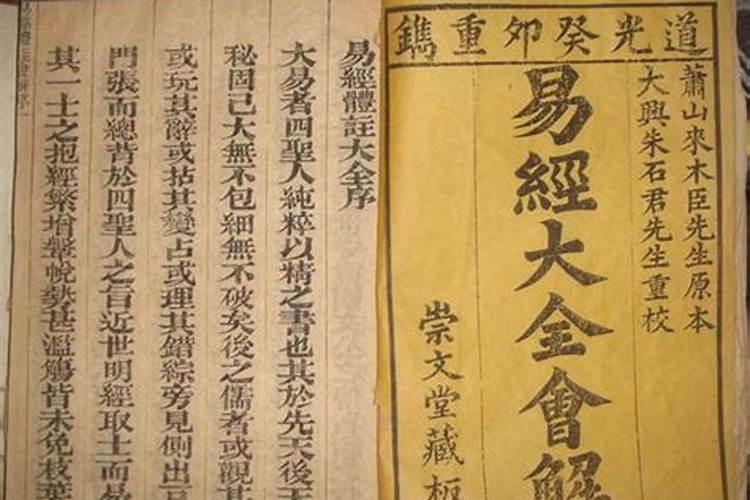 道光癸卯重鐫
蕭山來木臣先生原本
大興朱石君先生重校
易經大全會解
崇文堂藏板
易經體註大全序
大易者四聖人純粹以精之書也其於先天後天
秘固已大無不包細無不破矣後之儒者或觀其
或玩其辭或拈其變占或理其錯綜旁見側出
門張而總背於四聖人之旨近世明經取士而易
其一士之抱經繁增鞶帨勢甚濫觴皆未免枝葉